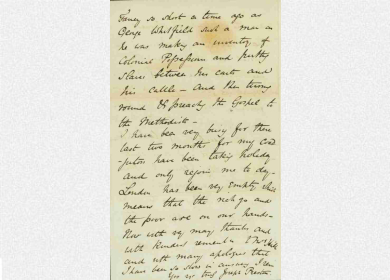 Fancy so short a time ago as
George Whitfield such a man as
he was making an inventory of
Colonial Possessions and putting
Slaves between his carts and
his cattle — And then turning
round & preaching the Gospel to
the Methodists —
I have been very busy for these
last two months for my coad-
jutors have been taking holiday
and only rejoin me to-day.
London has been very empty which
means that the rich go and
the poor are on our hands —
Now with very many thanks and
with kindest remembrances to
and with many apologies that
I have been so slow in answering I am
Yrs very truly